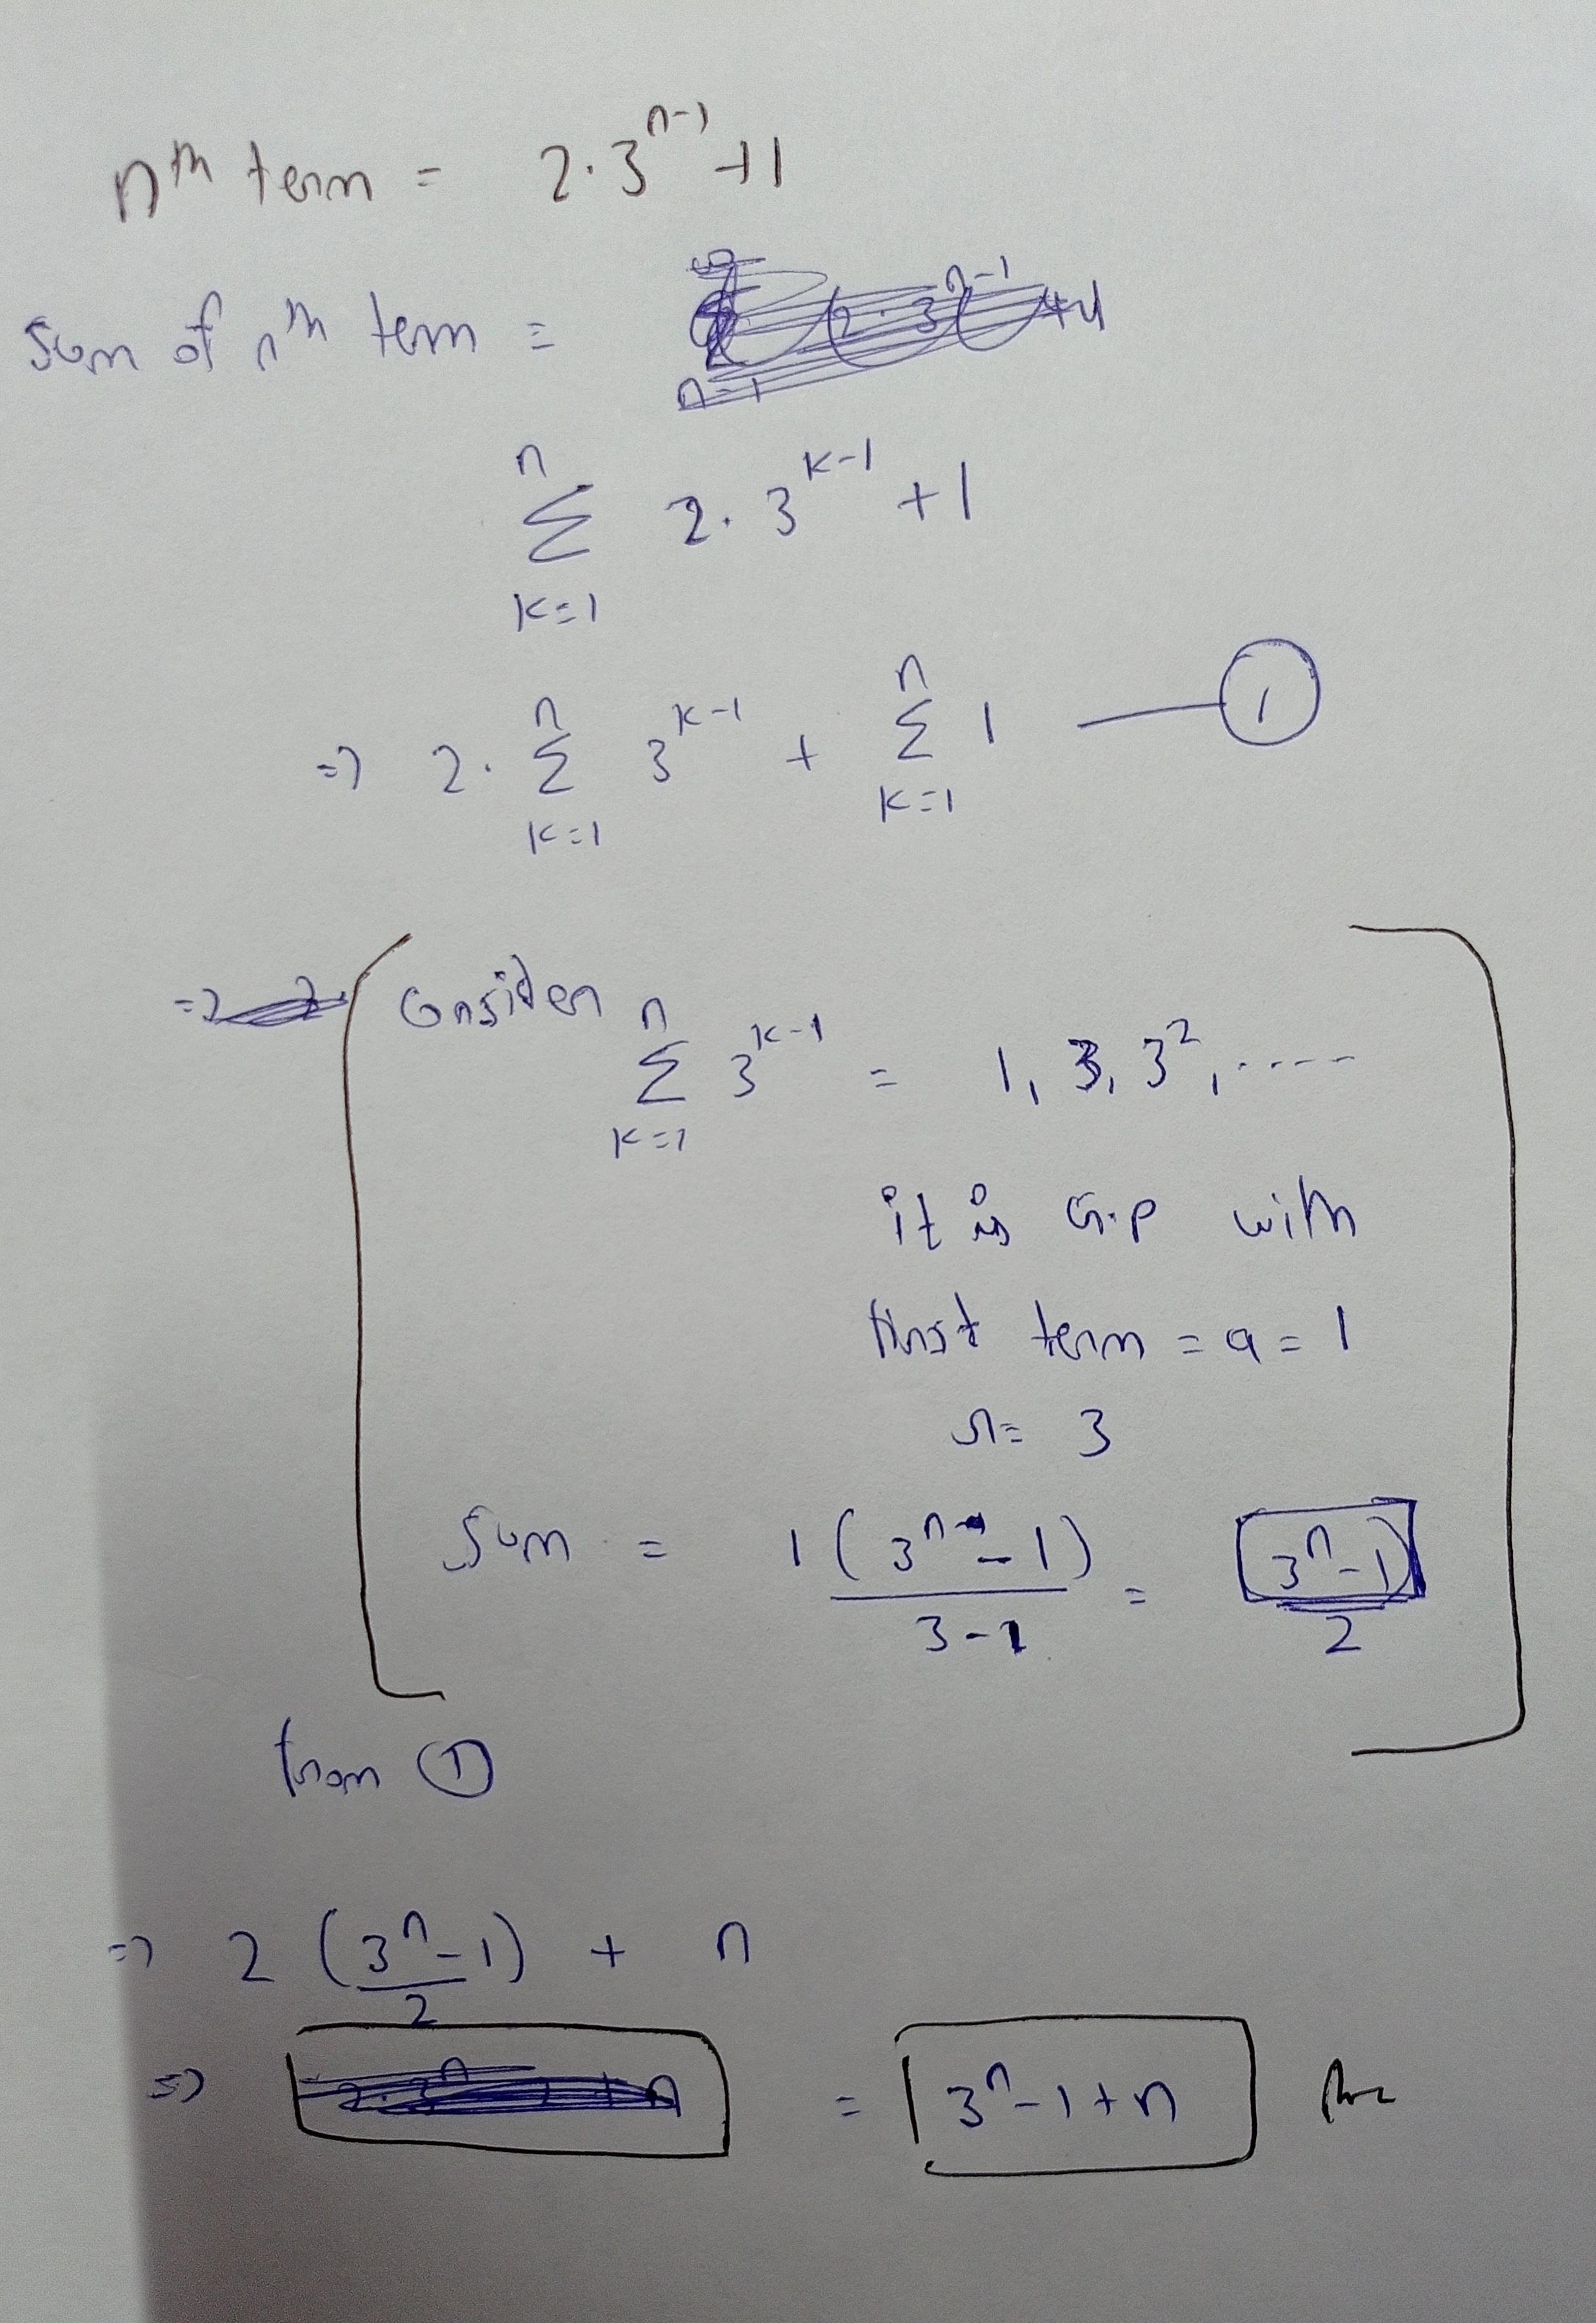 nth term = 2·3^(n-1) + 1
Sum of nth term =
n
Σ 2·3^(k-1) + 1
k=1
=> 2· Σ(k=1 to n) 3^(k-1) + Σ(k=1 to n) 1 — ①
Consider
Σ(k=1 to n) 3^(k-1) = 1, 3, 3², .....
it is G.P with
first term = a = 1
r = 3
Sum = 1(3^n - 1)/(3-1) = (3^n - 1)/2
from ①
=> 2 (3^n - 1)/2 + n
=> = 3^n - 1 + n